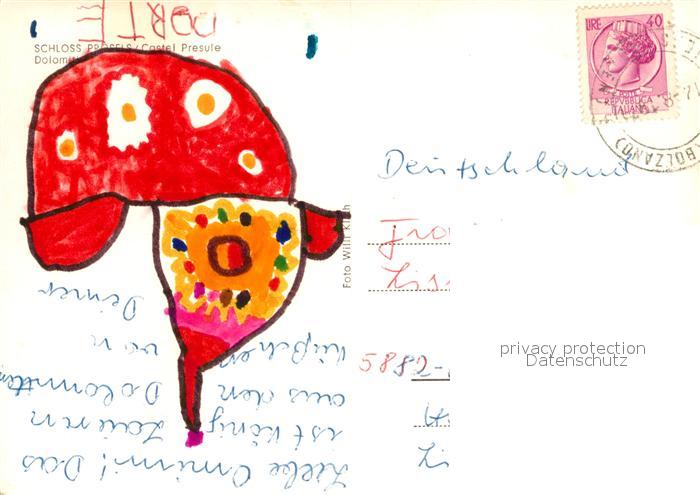 DORTE
SCHLOSS PRÖSELS / Castel Presule
Dolomi
LIRE 40
POSTE
REPVBBLICA
ITALIANA
(BOLZANO)
Deutschland
Fra
Lis
5882-
Foto Willi
privacy protection
Datenschutz
Liebe Omimi! Das
ist König Laurin
aus den Dolomiten
Küßchen von
Deiner